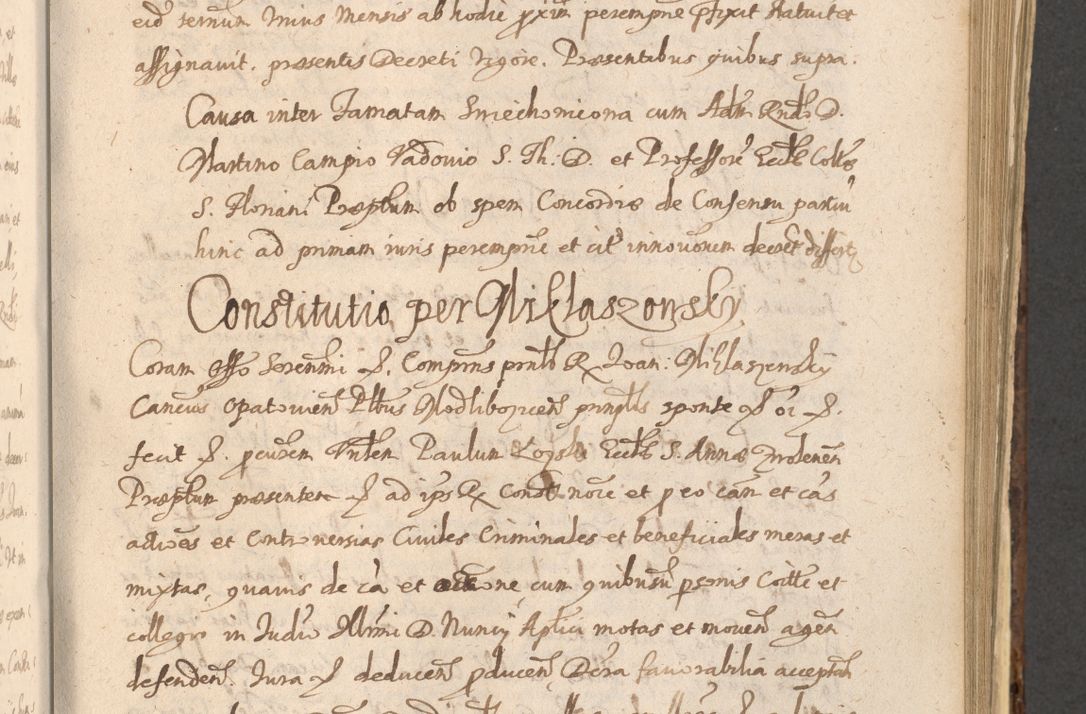 eid terñum Iuris Mensis ab hodie pxim perempne pfixit statuit et
assignavit. praesentis Decreti vigore. Praesentibus quibus supra.
Causa inter Famatam Smiechowicowa cum Adm Rndo D.
Martino Campio Vadovio S. Th: D. et Professore Eccle Colltae
S. Floriani Praeptum ob spem Concordiae de Consensu partiu
hinc ad primam iuris perempne et cit innovonem decret differt
Constitutio per Miklaszowsky
Coram Offo personali &. Comprens prntb R Ioan: Miklaszewsky
Cancus Opatovien Pltus Modliboricen prinplis sponte & oi &.
fecit &. pcurem Vnlem Paulum Kozski Eccle S. Annae
Praeptum praesentem & ad ips R Constt nore et p eo cam et cas
actioes et Controversias Civiles Criminales et beneficiales meras et
mixtas, quavis de ca et actione cum quibusvis psonis Coittte et
collegio in Iudio Illmi D. Nuncij Aplici motas et moven agen
defenden. Iura & deducen pducen Dcra favorabilia acceptan